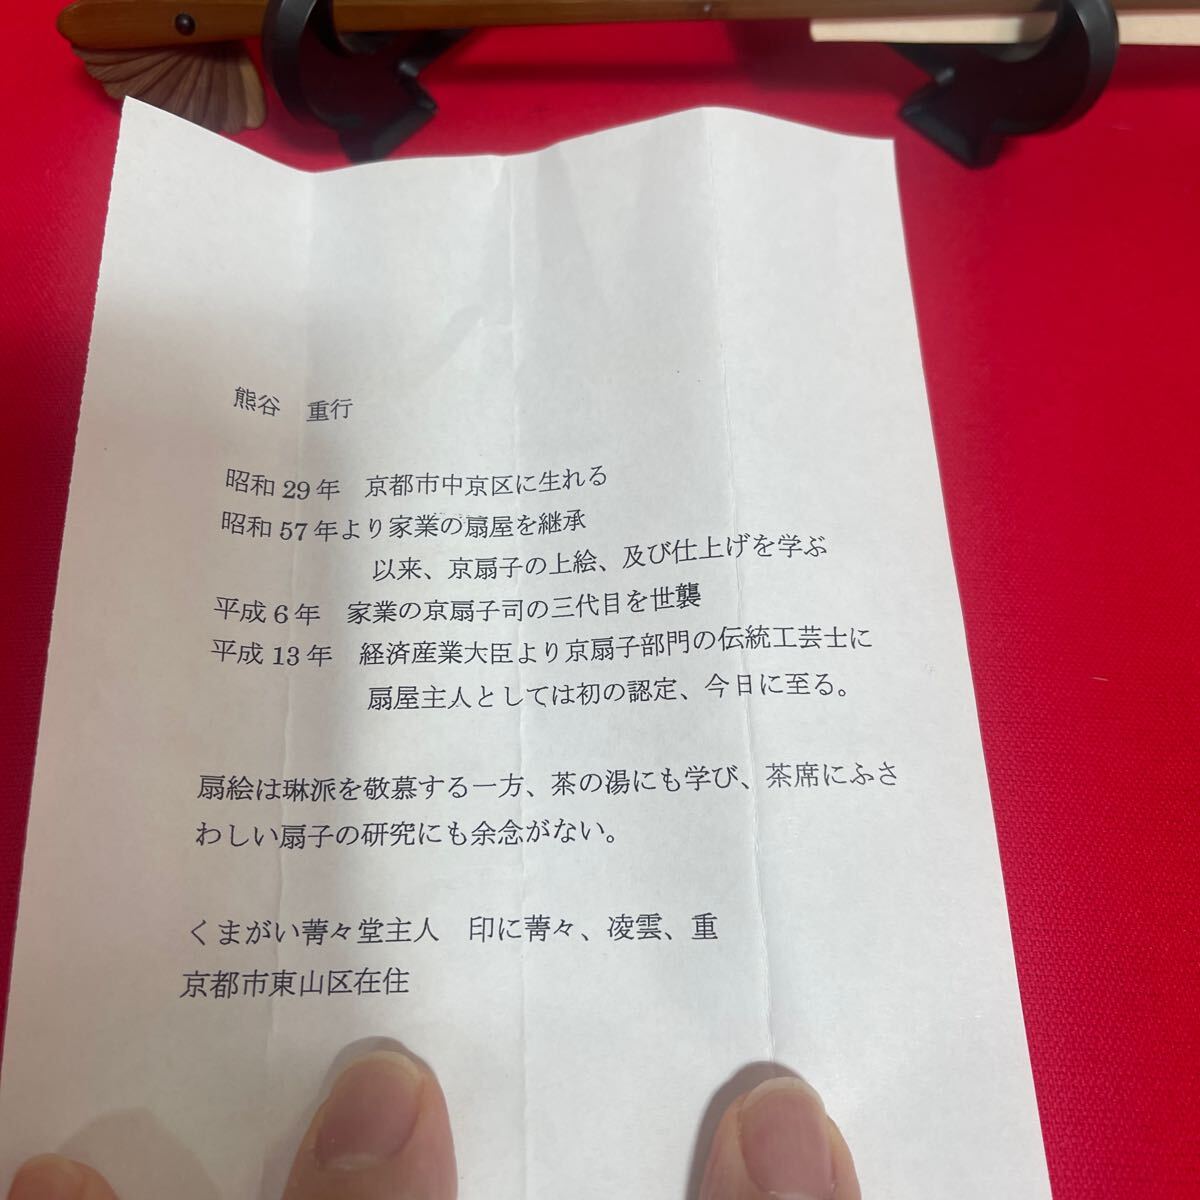 熊谷　重行
昭和29年　京都市中京区に生れる
昭和57年より家業の扇屋を継承
以来、京扇子の上絵、及び仕上げを学ぶ
平成6年　家業の京扇子司の三代目を世襲
平成13年　経済産業大臣より京扇子部門の伝統工芸士に
扇屋主人としては初の認定、今日に至る。
扇絵は琳派を敬慕する一方、茶の湯にも学び、茶席にふさ
わしい扇子の研究にも余念がない。
くまがい菁々堂主人　印に菁々、凌雲、重
京都市東山区在住